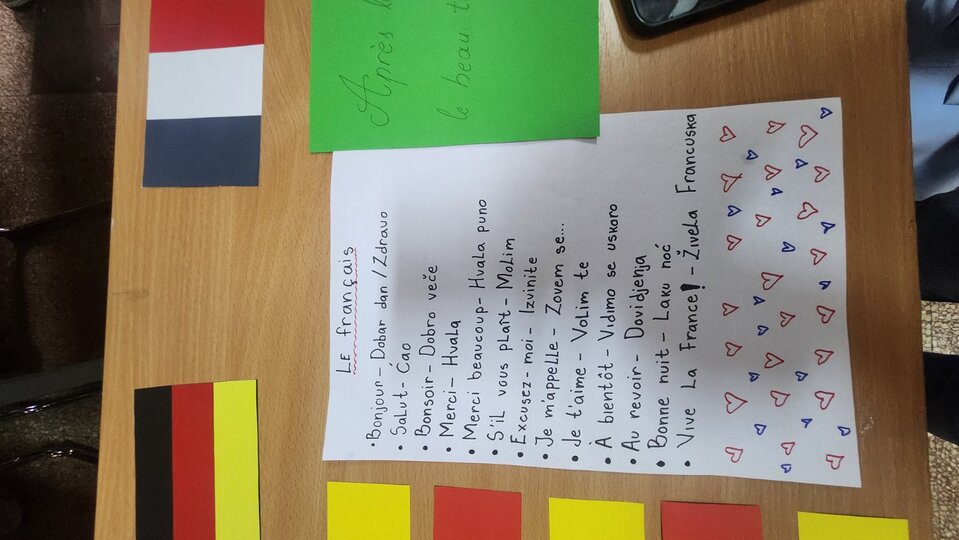 Après
le beau t
LE français
• Bonjour - Dobar dan / Zdravo
• Salut - Cao
• Bonsoir - Dobro veče
• Merci - Hvala
• Merci beaucoup - Hvala puno
• S'il vous plaît - Molim
• Excusez-moi - Izvinite
• Je m'appelle - Zovem se...
• Je t'aime - Volim te
• À bientôt - Vidimo se uskoro
• Au revoir - Dovidjenja
• Bonne nuit - Laku noć
• Vive La France! - Živela Francuska